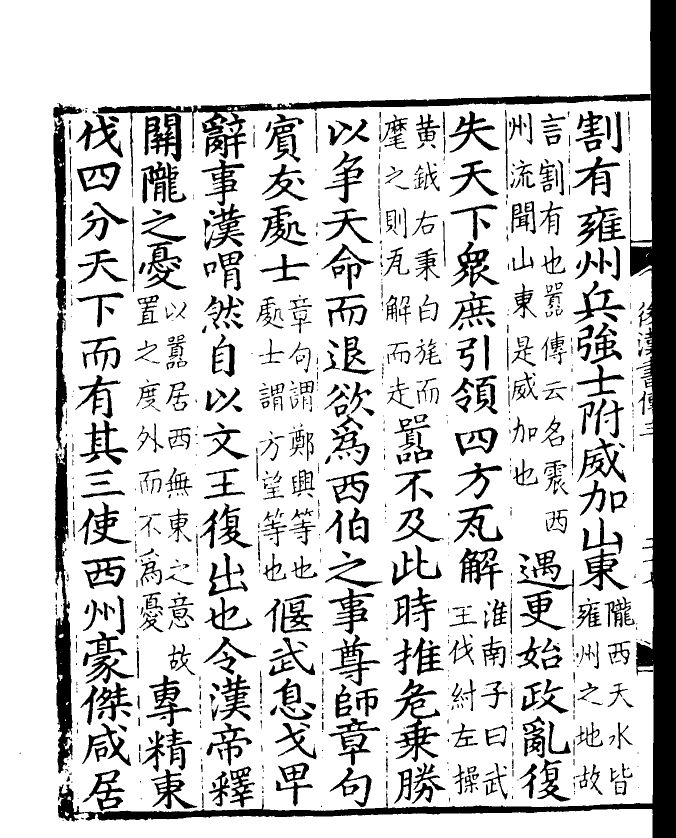 割有雍州兵強士附威加山東隴西天水皆雍州之地故
言割有也囂傳云名震西州流聞山東是威加也遇更始政亂復
失天下衆庶引領四方瓦解淮南子曰武王伐紂左操
黃鉞右秉白旄而麾之則瓦解而走囂不及此時推危乗勝
以爭天命而退欲爲西伯之事尊師章句
賔友處士章句謂鄭興等也處士謂方望等也偃武息戈卑
辭事漢喟然自以文王復出也令漢帝釋
關隴之憂以囂居西無東之意故置之度外而不爲憂專精東
伐四分天下而有其三使西州豪傑咸居